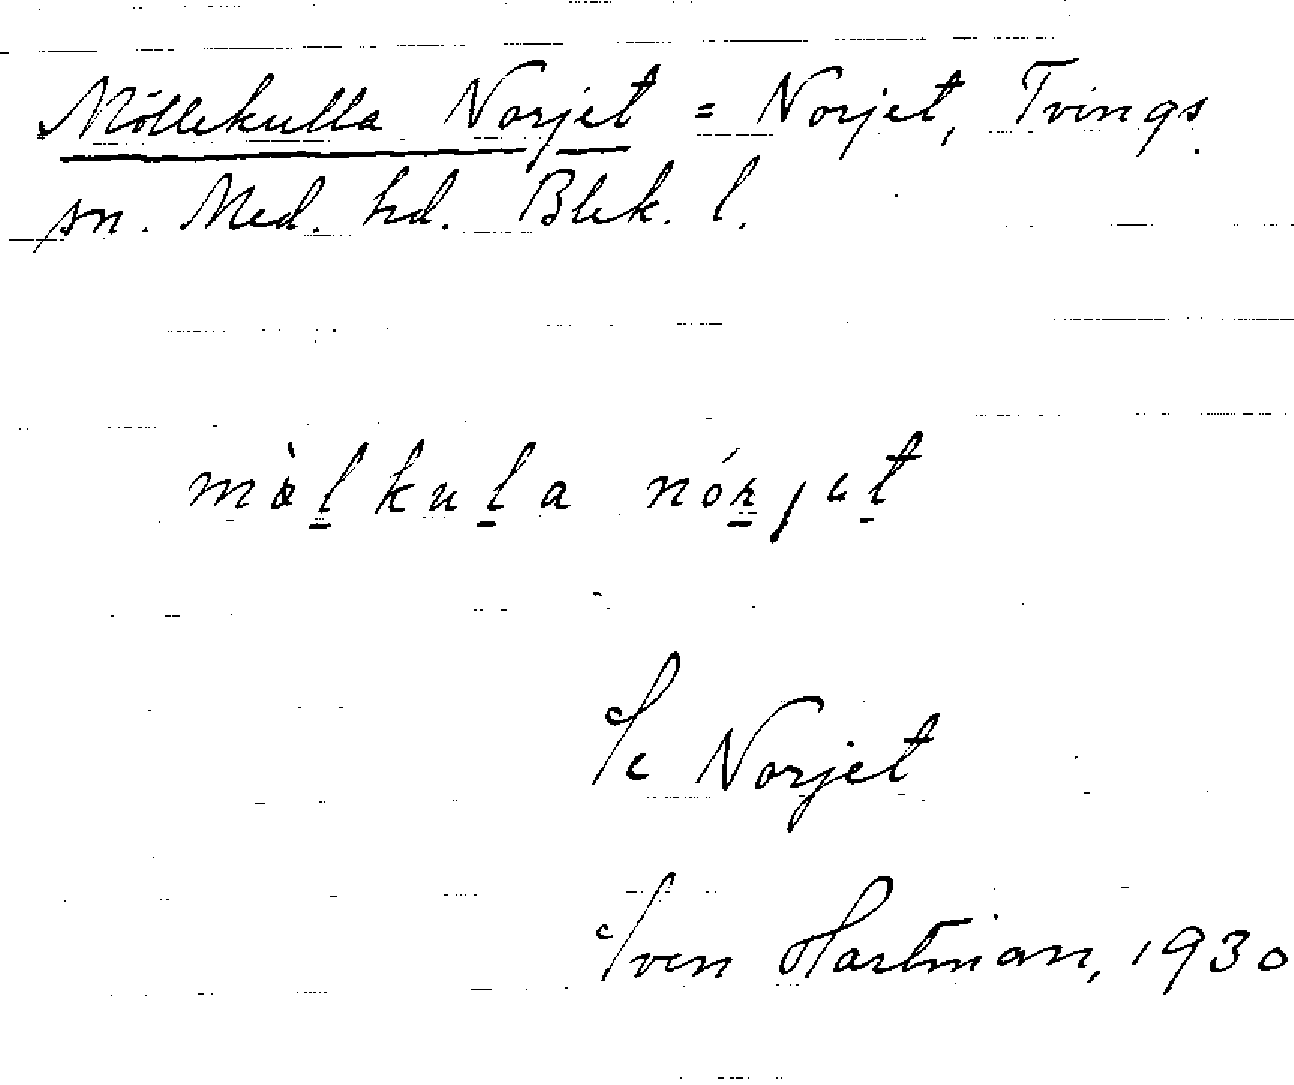 Möllekulla Norjet = Norjet, Tvings
sn. Med. hd. Blek. l.
mə̀l̠kul̠a nór̠jet̠
Se Norjet
Sven Hartman, 1930